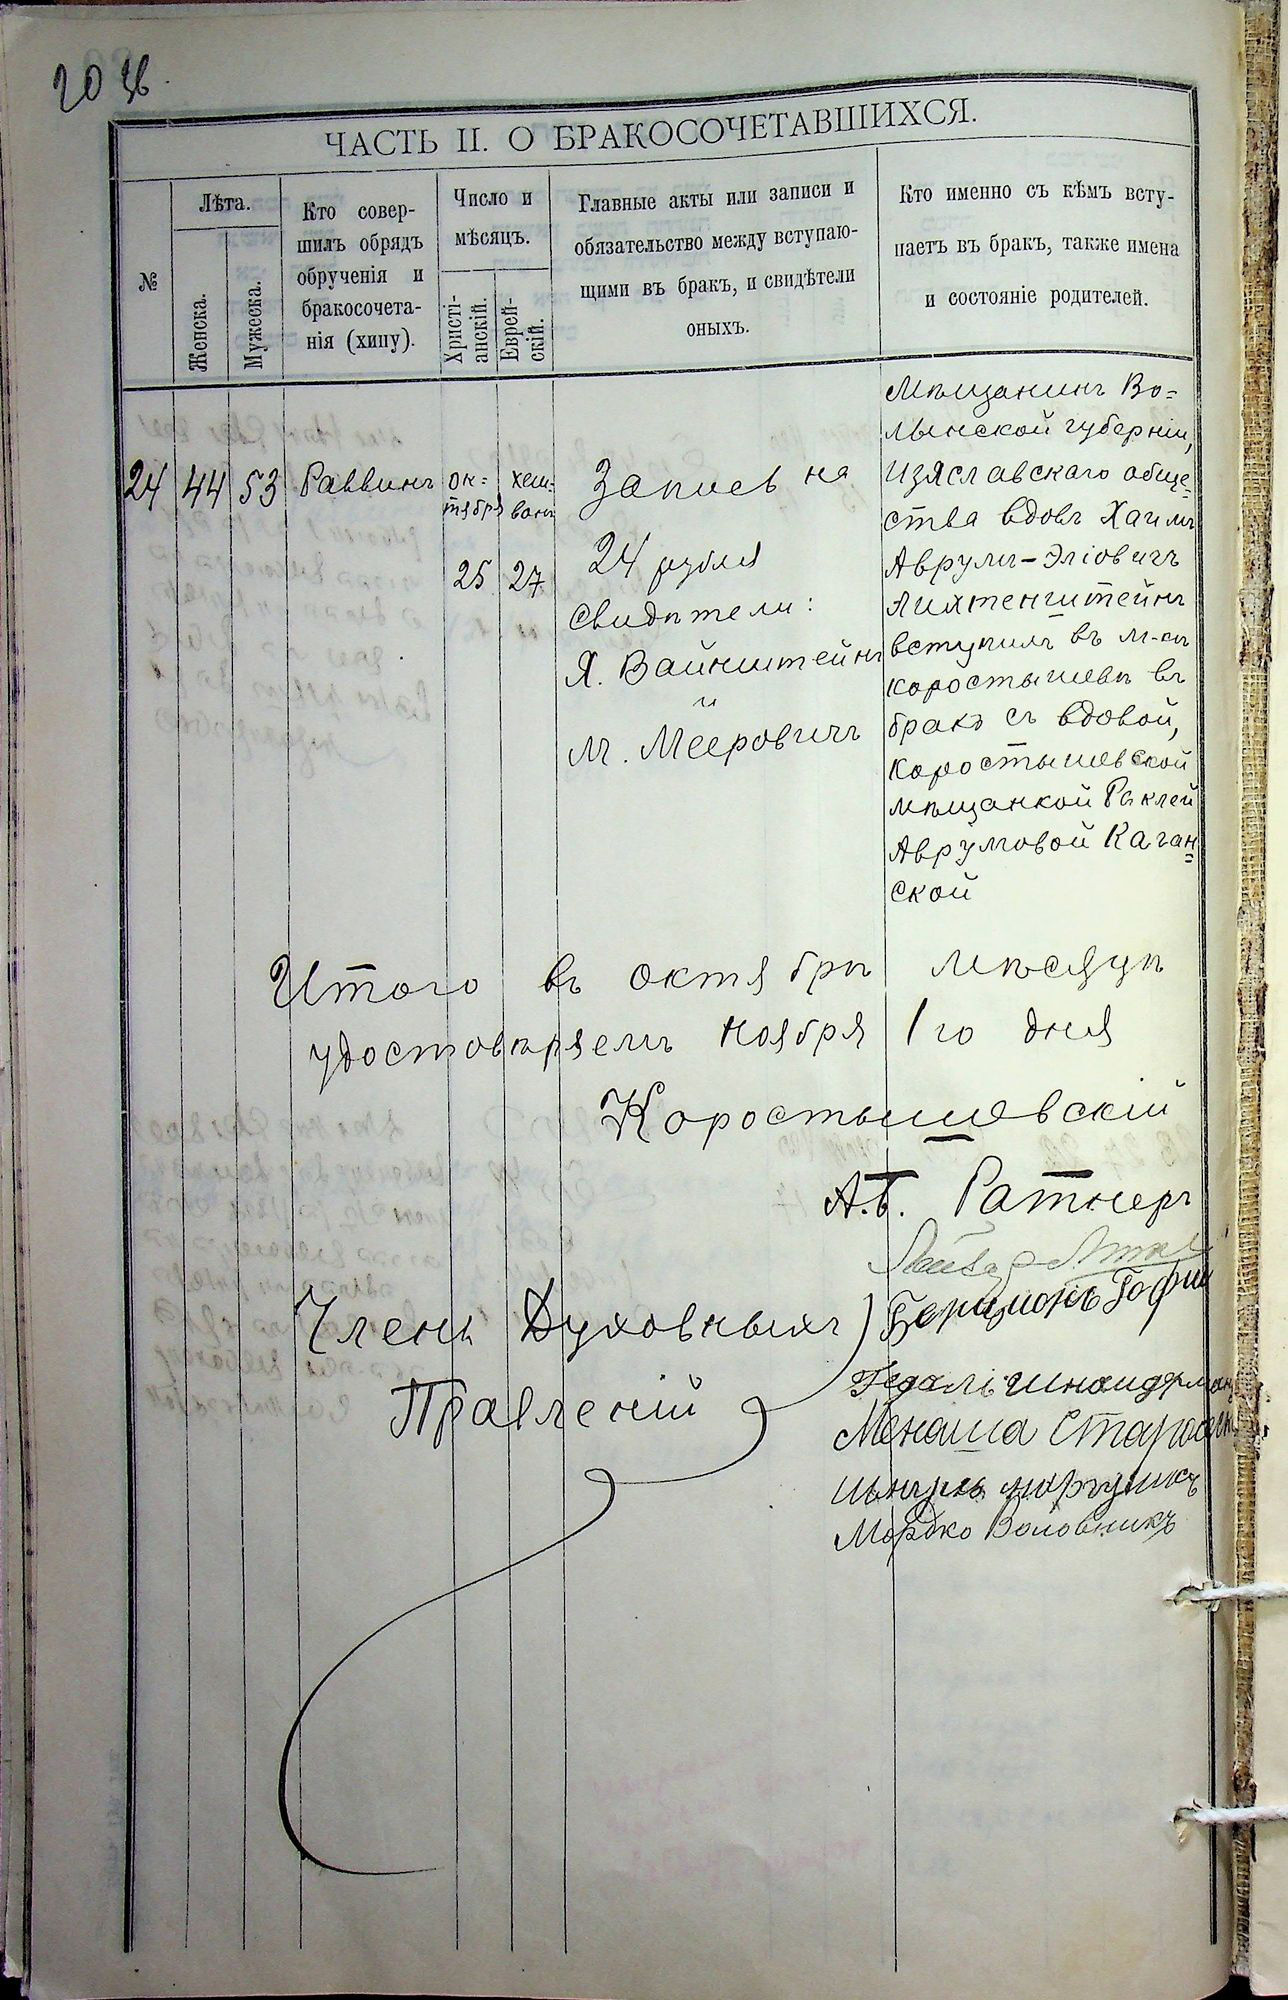 20 об.
ЧАСТЬ II. О БРАКОСОЧЕТАВШИХСЯ.
№
Лѣта.
Женска.
Мужеска.
Кто совер-
шилъ обрядъ
обрученія и
бракосочета-
нія (хипу).
Число и
мѣсяцъ.
Христі-
анскій.
Еврей-
скій.
Главные акты или записи и
обязательство между вступаю-
щими въ бракъ, и свидѣтели
оныхъ.
Кто именно съ кѣмъ всту-
паетъ въ бракъ, также имена
и состояніе родителей.
24
44
53
Раввинъ
ок=
тября
25
хеш=
вонъ
27
Запись на
24 рубля
свидѣтели:
Я. Вайнштейнъ
и
М. Мееровичъ
Мѣщанинъ Во=
лынской губерніи,
Изяславскаго обще=
ства вдовъ Хаимъ
Аврумъ-Эліовичъ
Лихтенштейнъ
вступилъ въ м-кѣ
Коростышевѣ въ
бракъ съ вдовой,
Коростышевской
мѣщанкой Раклей
Аврумовой Каган=
ской
Итого въ октябрѣ мѣсяцѣ
удостовѣряемъ ноября 1го дня
Коростышевскій
А.Б. Ратнеръ
Члены Духовныхъ
Правленій
Бенціонъ Гофш
Гедаль Шнайдерман
Менаша Старосел
Мордко Воловникъ